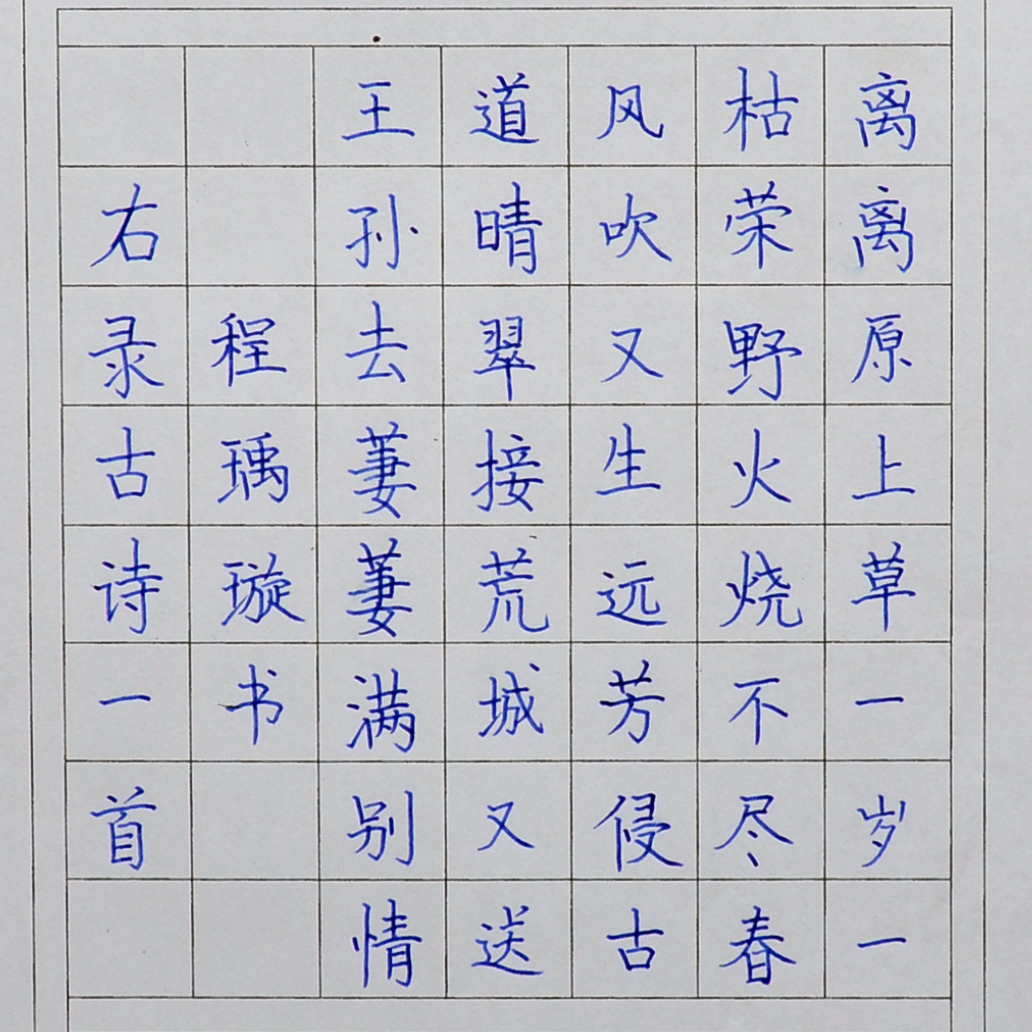 离离原上草一岁一
枯荣野火烧不尽春
风吹又生远芳侵古
道晴翠接荒城又送
王孙去萋萋满别情
程瑀璇书
右录古诗一首